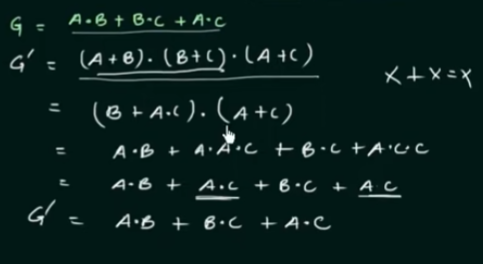 G = A·B + B·C + A·C
G' = (A+B)·(B+C)·(A+C)
x+x=x
= (B + A·C)·(A+C)
= A·B + A·A·C + B·C + A·C·C
= A·B + A·C + B·C + A C
G' = A·B + B·C + A·C